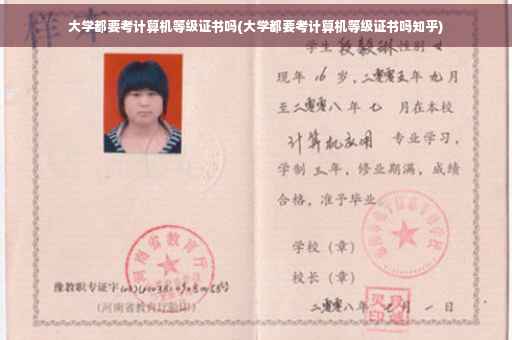 大学都要考计算机等级证书吗(大学都要考计算机等级证书吗知乎)
样本
学生 段毅琳 性别 女
现年 16 岁，二零零五年 九月
至二零零八年 七 月在本校
计算机应用 专业学习，
学制 三 年，修业期满，成绩
合格，准予毕业。
学校（章）
校长（章）
二零零八年 七 月 一 日
河南省教育厅
豫教职专证字
(河南省教育厅验印)